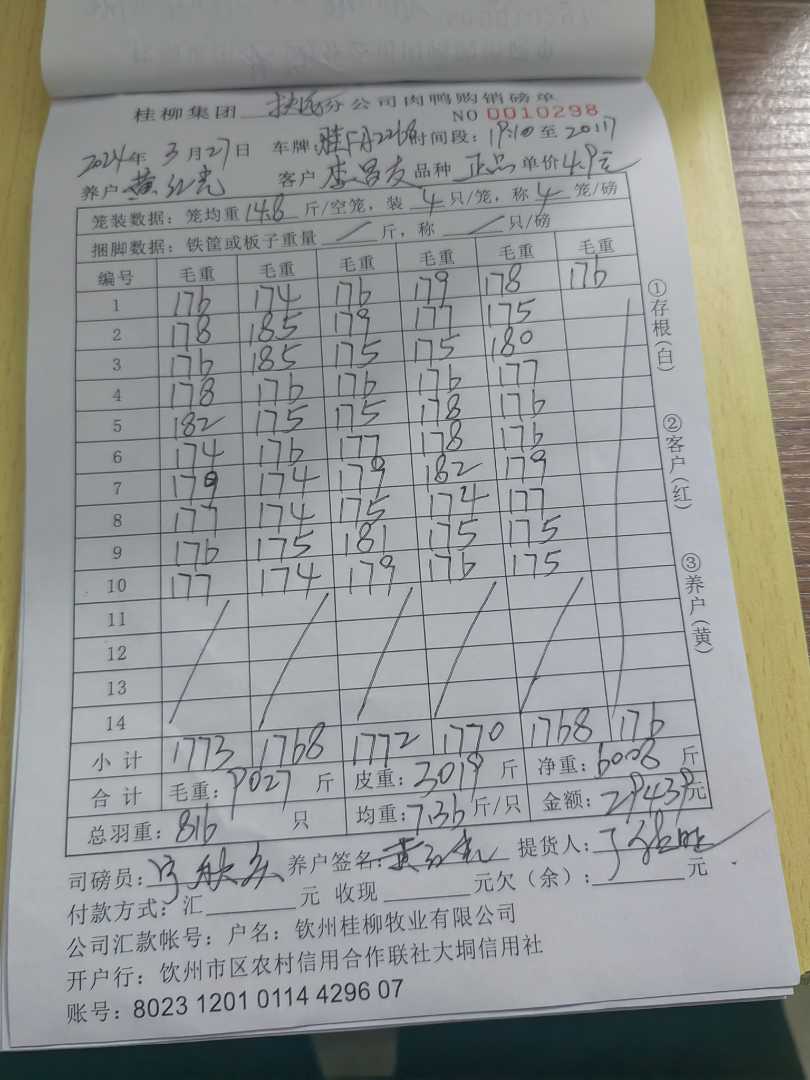 桂柳集团 分公司肉鸭购销磅单
NO 0010298
2024年 3月27日 车牌: 时间段: 19:10 至 20:17
养户 黄红亮 客户 李昌友 品种 正品 单价 4.9元
笼装数据: 笼均重 14.8 斤/空笼, 装 4 只/笼, 称 4 笼/磅
捆脚数据: 铁筐或板子重量 / 斤, 称 / 只/磅
编号 毛重 毛重 毛重 毛重 毛重 毛重
1 176 174 176 179 178 176
2 178 185 179 177 175
3 176 185 175 175 180
4 178 176 176 176 177
5 182 175 175 178 176
6 174 176 177 178 176
7 179 174 179 182 179
8 177 174 175 174 177
9 176 175 181 175 175
10 177 174 179 176 175
11
12
13
14
小计 1773 1768 1772 1770 1768 176
合计 毛重: 9027 斤 皮重: 3019 斤 净重: 6008 斤
总羽重: 816 只 均重: 7.36 斤/只 金额: 29439元
司磅员: 养户签名: 黄红亮 提货人:
付款方式: 汇 元 收现 元欠(余): 元
公司汇款帐号: 户名: 钦州桂柳牧业有限公司
开户行: 钦州市区农村信用合作联社大垌信用社
账号: 8023 1201 0114 4296 07
①存根(白)
②客户(红)
③养户(黄)